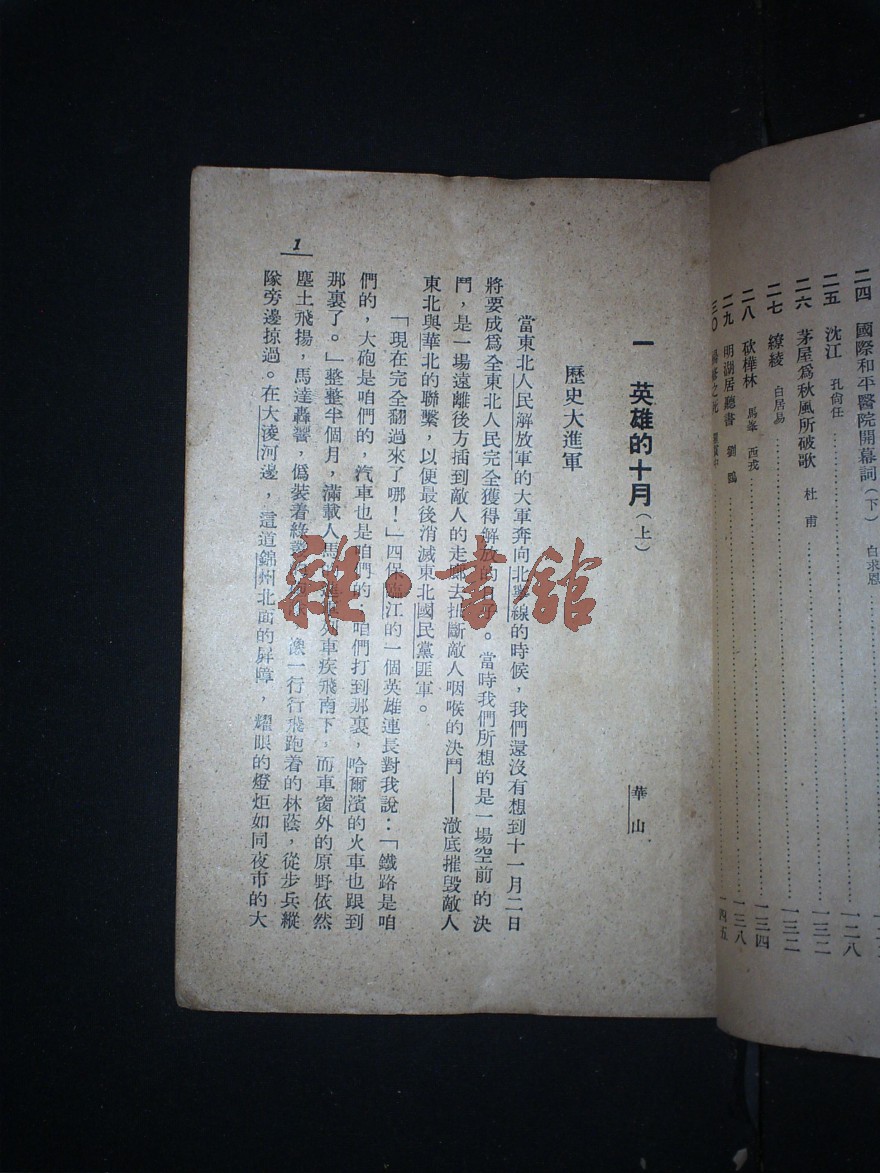 二四 國際和平醫院開幕詞(下) 白求恩 一二八
二五 沈江 孔尙任 一三二
二六 茅屋爲秋風所破歌 杜甫
二七 繚綾 白居易 一三二
二八 砍樺林 馬峯 西戎 一三四
二九 明湖居聽書 劉鶚 一三八
三〇 之死 一四五
一 英雄的十月(上)
華山
歷史大進軍
當東北人民解放軍的大軍奔向北寧線的時候，我們還沒有想到十一月二日
將要成爲全東北人民完全獲得解放的日子。當時我們所想的是一場空前的決
鬥，是一場遠離後方插到敵人的走廊去扼斷敵人咽喉的決鬥——澈底摧毀敵人
東北與華北的聯繫，以便最後消滅東北國民黨匪軍。
「現在完全翻過來了哪！」四保臨江的一個英雄連長對我說：「鐵路是咱
們的，大砲是咱們的，汽車也是咱們的，咱們打到那裏，哈爾濱的火車也跟到
那裏了。」整整半個月，滿載人馬 列車疾飛南下，而車窗外的原野依然
塵土飛揚，馬達轟響，僞裝着綠 像一行行飛跑着的林蔭，從步兵縱
隊旁邊掠過。在大凌河邊，這道錦州北面的屏障，耀眼的燈炬如同夜市的大
1
雜·書館